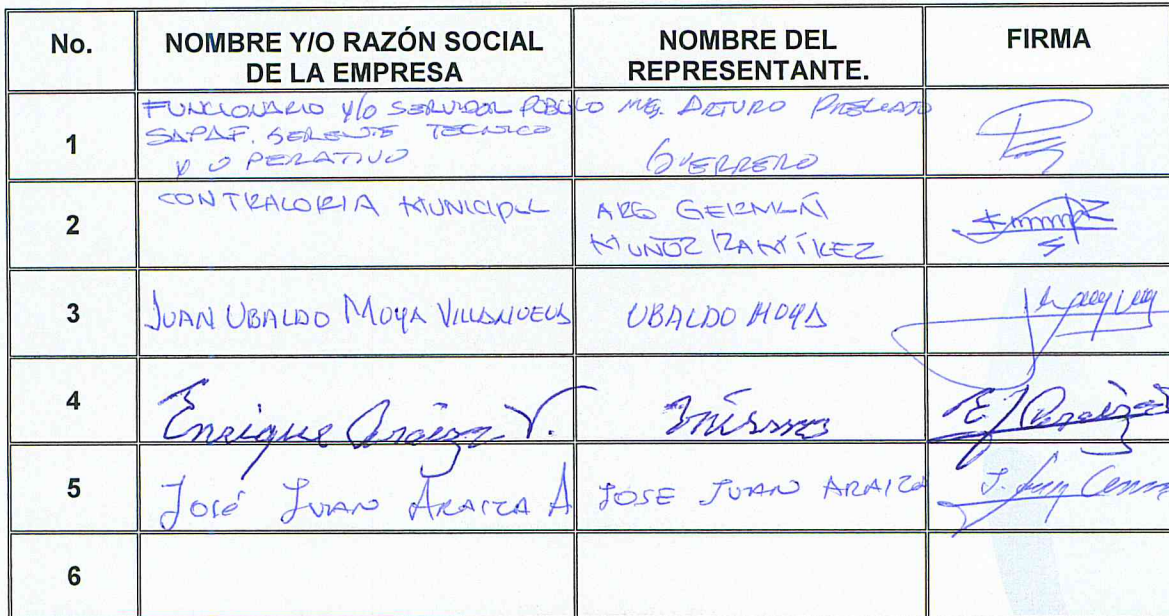 No.
NOMBRE Y/O RAZÓN SOCIAL
DE LA EMPRESA
NOMBRE DEL
REPRESENTANTE.
FIRMA
1
FUNCIONARIO Y/O SERVIDOR PÚBLICO
SAPAF. GERENTE TECNICO
Y OPERATIVO
ARTURO PRECIADO
GUERRERO
2
CONTRALORIA MUNICIPAL
ARQ GERMAN
MUÑOZ RAMÍREZ
3
JUAN UBALDO MOYA VILLANUEVA
UBALDO MOYA
4
Enrique Araiza V.
mismo
E Araiza
5
José JUAN ARAIZA A
JOSE JUAN ARAIZA
6